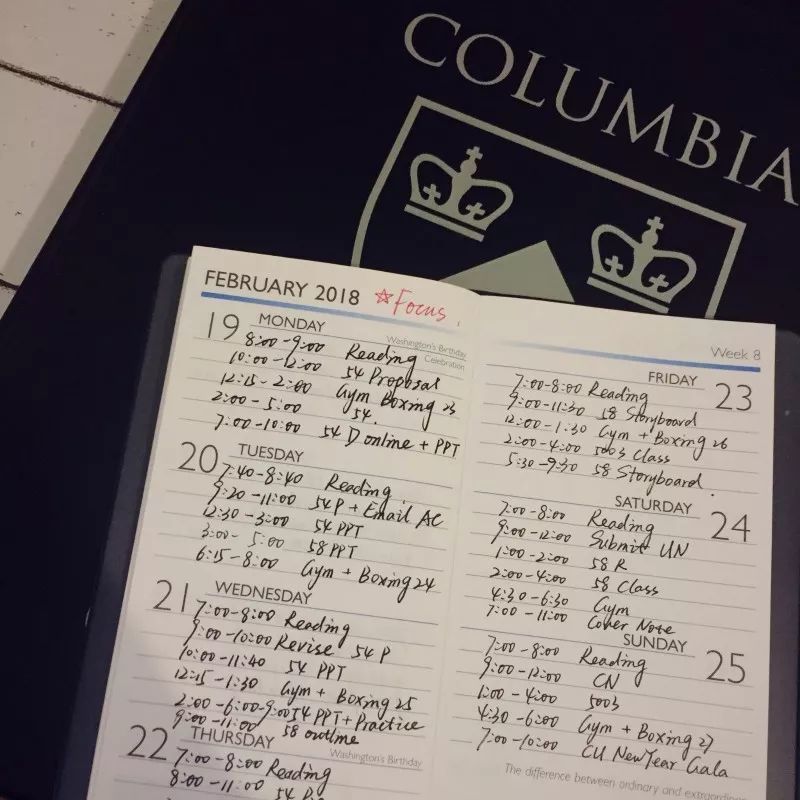 COLUMBIA
FEBRUARY 2018 ☆Focus
19 MONDAY
Washington's Birthday
Celebration
8:00-9:00 Reading
10:00-12:00 54 Proposal
12:15-2:00 Gym Boxing 23
2:00-5:00 54.
7:00-10:00 54 D online + PPT
20 TUESDAY
7:40-8:40 Reading
9:20-11:00 54P + Email AC
12:30-3:00 54 PPT
3:00-5:00 58 PPT
6:15-8:00 Gym + Boxing 24
21 WEDNESDAY
7:00-8:00 Reading
9:00-10:00 Revise 54 P
10:00-11:40 54 PPT
12:15-1:30 Gym + Boxing 25
2:00-6:00-9:00 54 PPT + Practice
9:00-11:00 58 outline
22 THURSDAY
Washington's Birthday
7:00-8:00 Reading
8:00-11:00 54
Week 8
FRIDAY 23
7:00-8:00 Reading
9:00-11:30 58 Storyboard
12:00-1:30 Gym + Boxing 26
2:00-4:00 5003 Class
5:30-9:30 58 Storyboard.
SATURDAY 24
7:00-8:00 Reading
9:00-12:00 Submit UN
1:00-2:00 58 R
2:00-4:00 58 Class
4:30-6:30 Gym
7:00-11:00 Cover Note
SUNDAY 25
7:00-8:00 Reading
9:00-12:00 CN
1:00-4:00 5003
4:30-6:00 Gym + Boxing 27
7:00-10:00 CU New Year Gala
The difference between ordinary and